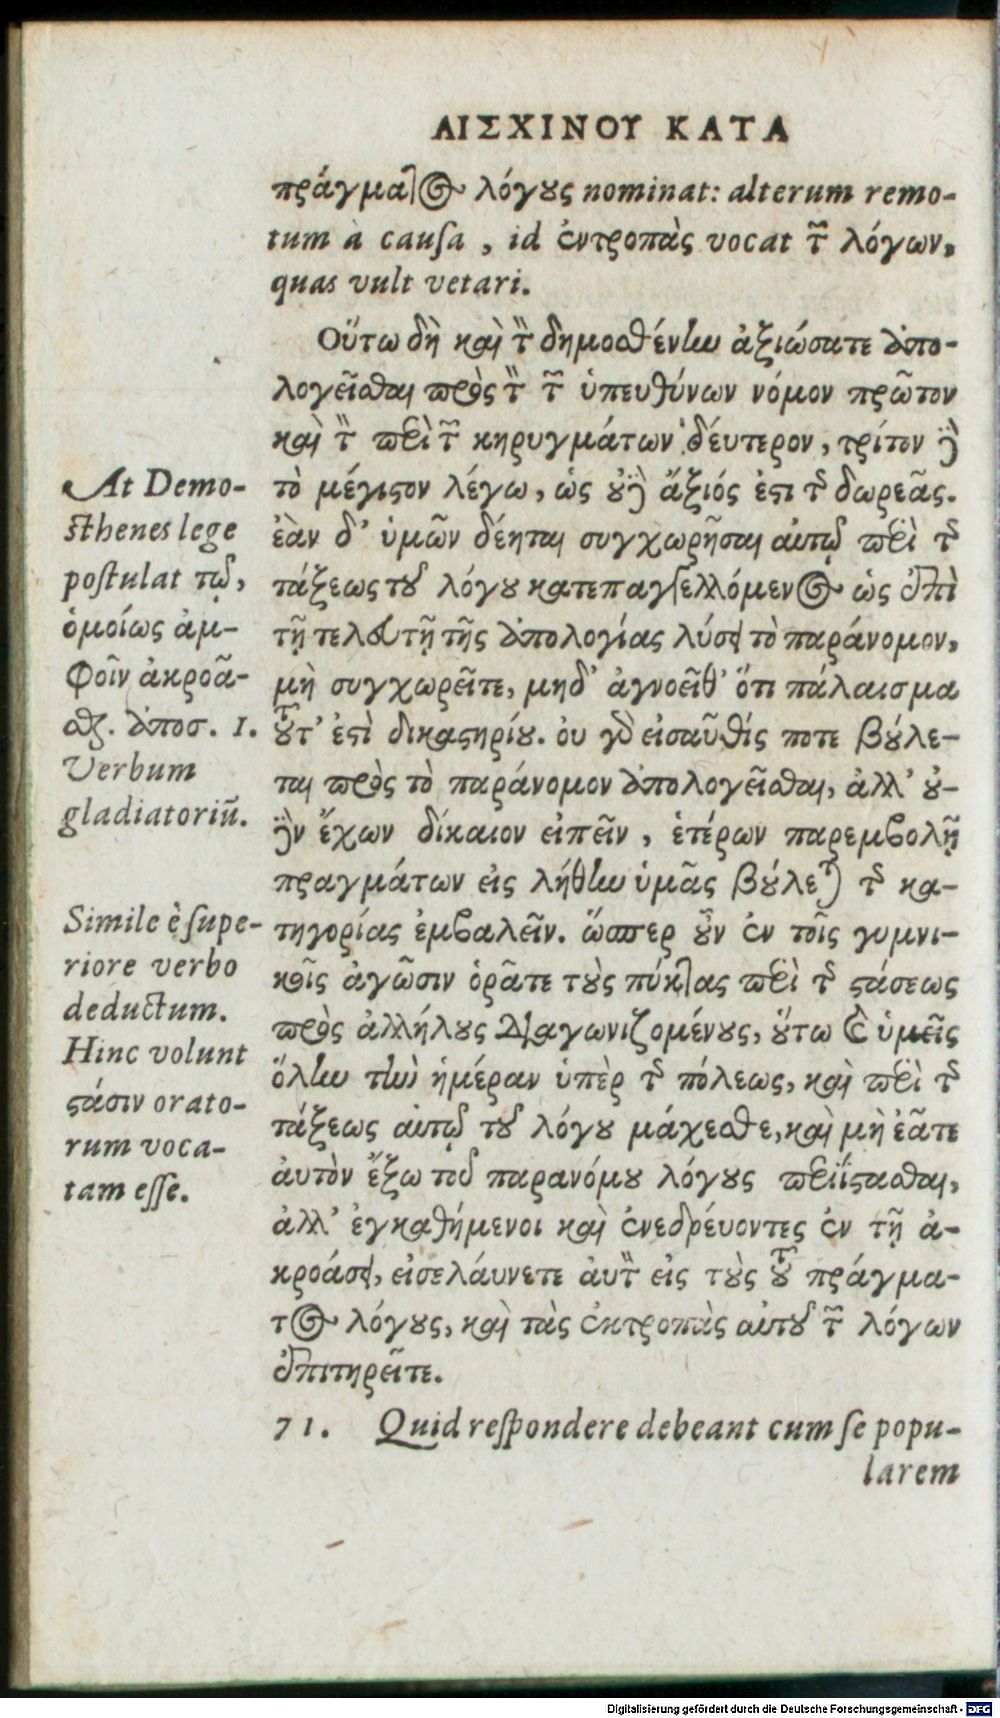 ΑΙΣΧΙΝΟΥ ΚΑΤΑ
πράγματος λόγους nominat: alterum remo-
tum à causa, id ἐντροπὰς vocat τῶν λόγων,
quas vult vetari.
Οὕτω δὴ καὶ τὸν δημοσθένην ἀξιώσατε ἀπο-
λογεῖσθαι πρὸς τὸν τῶν ὑπευθύνων νόμον πρῶτον
καὶ τὸν περὶ τῶν κηρυγμάτων δέυτερον, τρίτον δὲ
τὸ μέγιστον λέγω, ὡς οὐδὲ ἄξιός ἐστι τῆς δωρεᾶς.
ἐὰν δ' ὑμῶν δέηται συγχωρῆσαι αὐτῷ περὶ τῆς
τάξεως τοῦ λόγου κατεπαγγελλόμενος ὡς ἐπὶ
τῇ τελευτῇ τῆς ἀπολογίας λύσει τὸ παράνομον,
μὴ συγχωρεῖτε, μηδ' ἀγνοεῖθ' ὅτι πάλαισμα
τοῦτ' ἐστὶ δικαστηρίου. οὐ γὰρ εἰσαῦθίς ποτε βούλε-
ται πρὸς τὸ παράνομον ἀπολογεῖσθαι, ἀλλ' οὐ-
δὲν ἔχων δίκαιον εἰπεῖν, ἑτέρων παρεμβολῇ
πραγμάτων εἰς λήθην ὑμᾶς βούλεται τῆς κα-
τηγορίας ἐμβαλεῖν. ὥσπερ οὖν ἐν τοῖς γυμνι-
κοῖς ἀγῶσιν ὁρᾶτε τοὺς πύκτας περὶ τῆς στάσεως
πρὸς ἀλλήλους διαγωνιζομένους, οὕτω καὶ ὑμεῖς
ὅλην τὴν ἡμέραν ὑπὲρ τῆς πόλεως, καὶ περὶ τῆς
τάξεως αὐτῷ τοῦ λόγου μάχεσθε, καὶ μὴ ἐᾶτε
ἀυτὸν ἔξω τοῦ παρανόμου λόγους περιΐστασθαι,
ἀλλ' ἐγκαθήμενοι καὶ ἐνεδρέυοντες ἐν τῇ ἀ-
κροάσει, εἰσελάυνετε ἀυτὸν εἰς τοὺς τοῦ πράγμα-
τος λόγους, καὶ τὰς ἐκτροπὰς αὐτοῦ τῶν λόγων
ἐπιτηρεῖτε.
71. Quid respondere debeant cum se popu-
larem
At Demo-
sthenes lege
postulat τῷ,
ὁμοίως ἀμ-
φοῖν ἀκροᾶ-
σθαι. ἀποσ. 1.
Verbum
gladiatoriũ.
Simile è supe-
riore verbo
deductum.
Hinc volunt
στάσιν orato-
rum voca-
tam esse.
Digitalisierung gefördert durch die Deutsche Forschungsgemeinschaft - DFG